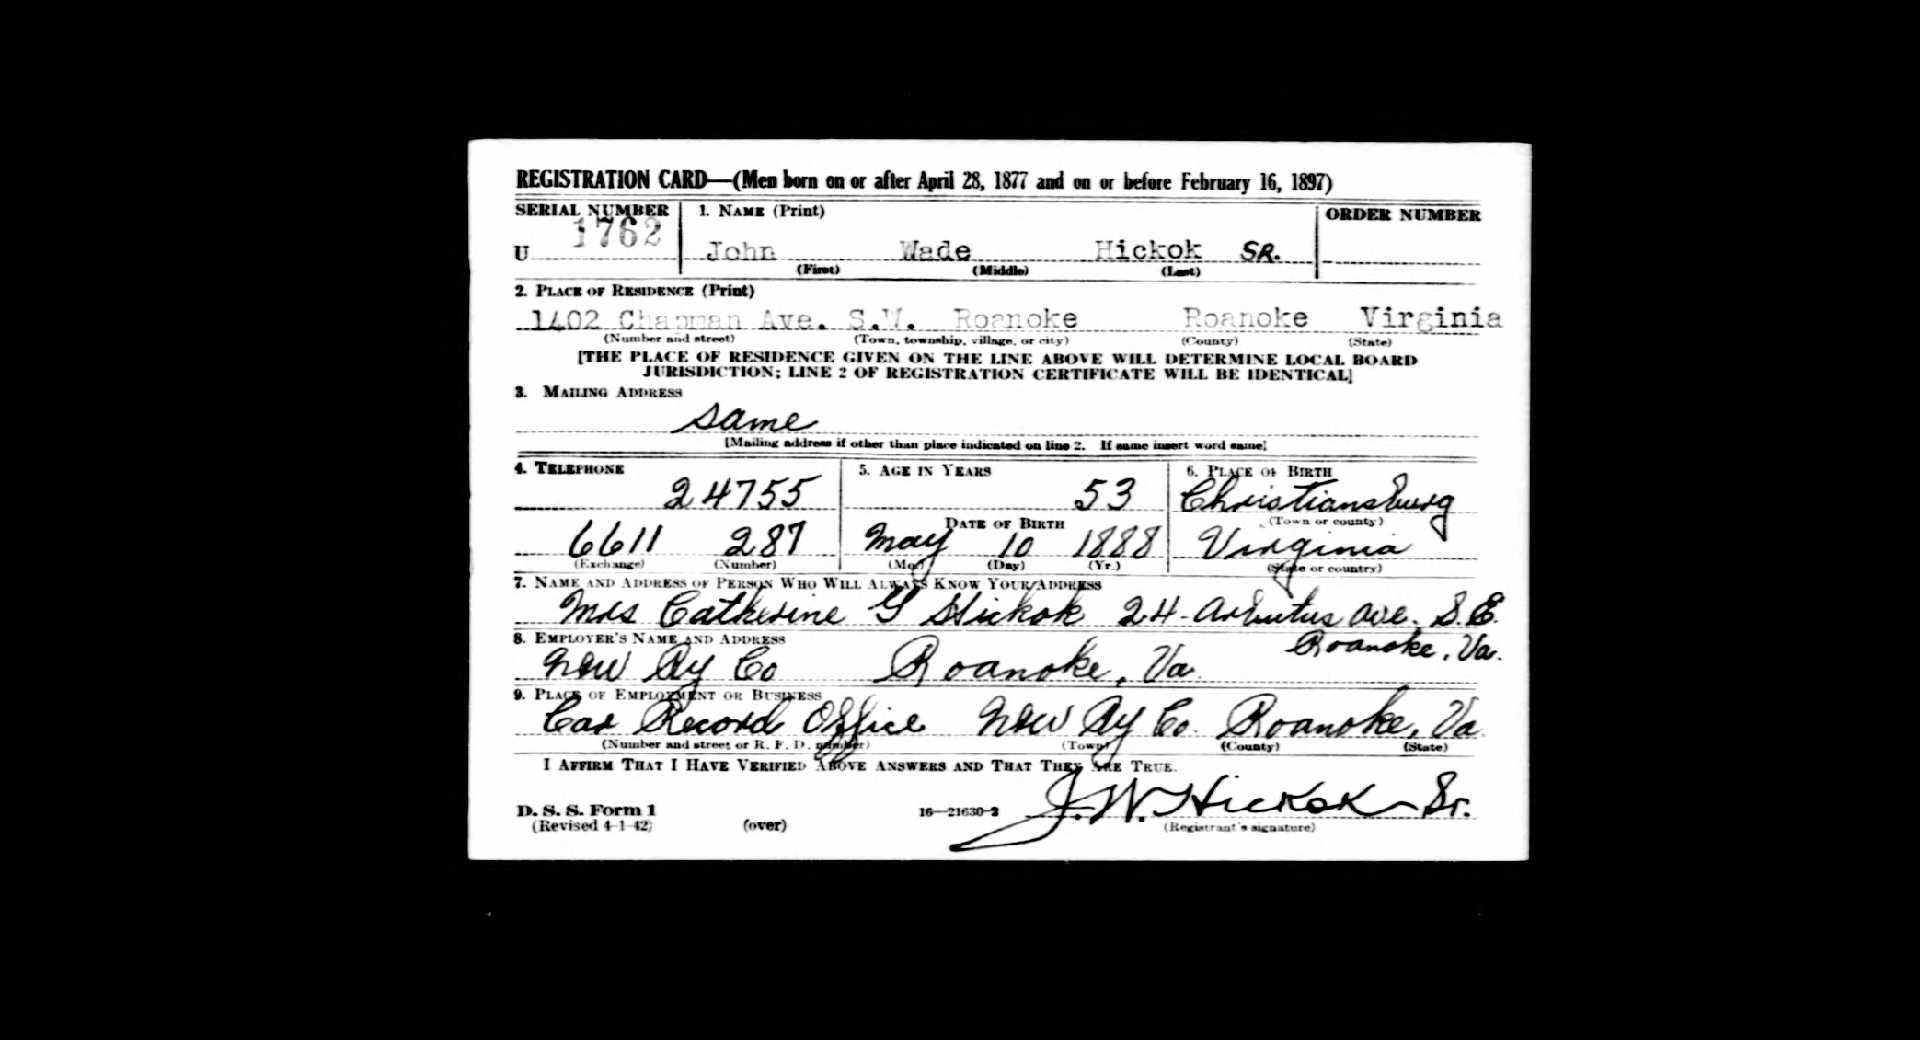 REGISTRATION CARD—(Men born on or after April 28, 1877 and on or before February 16, 1897)
SERIAL NUMBER 1. NAME (Print) ORDER NUMBER
U 1762 John Wade Hickok SR.
(First) (Middle) (Last)
2. PLACE OF RESIDENCE (Print)
1402 Chapman Ave. S.W. Roanoke Roanoke Virginia
(Number and street) (Town, township, village, or city) (County) (State)
[THE PLACE OF RESIDENCE GIVEN ON THE LINE ABOVE WILL DETERMINE LOCAL BOARD
JURISDICTION; LINE 2 OF REGISTRATION CERTIFICATE WILL BE IDENTICAL]
3. MAILING ADDRESS
same
[Mailing address if other than place indicated on line 2. If same insert word same]
4. TELEPHONE 5. AGE IN YEARS 6. PLACE OF BIRTH
24755 53 Christiansburg
DATE OF BIRTH (Town or county)
6611 287 May 10 1888 Virginia
(Exchange) (Number) (Mo.) (Day) (Yr.) (State or country)
7. NAME AND ADDRESS OF PERSON WHO WILL ALWAYS KNOW YOUR ADDRESS
Mrs Catherine G Hickok 24- Arbutus Ave. S.E.
8. EMPLOYER'S NAME AND ADDRESS Roanoke, Va.
N&W Ry Co Roanoke, Va.
9. PLACE OF EMPLOYMENT OR BUSINESS
Car Record Office N&W Ry Co. Roanoke, Va.
(Number and street or R. F. D. number) (Town) (County) (State)
I AFFIRM THAT I HAVE VERIFIED ABOVE ANSWERS AND THAT THEY ARE TRUE.
D. S. S. Form 1 16—21630-2 J. W. Hickok Sr.
(Revised 4-1-42) (over) (Registrant's signature)